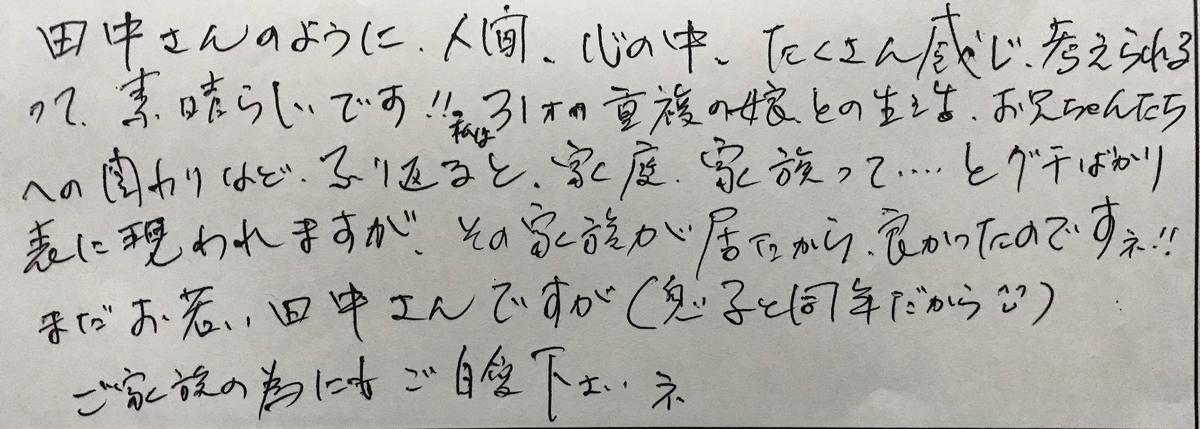 田中さんのように、人間、心の中、たくさん感じ、考えられる
って、素晴らしいです!! 私は31才の重複の娘との生活、お兄ちゃんたち
への関わりなど、ふり返ると、家庭、家族って‥‥とグチばかり
表に現われますが、その家族が居たから、良かったのですネ!!
まだお若い、田中さんですが(息子と同年だから)
ご家族の為にもご自愛下さいネ